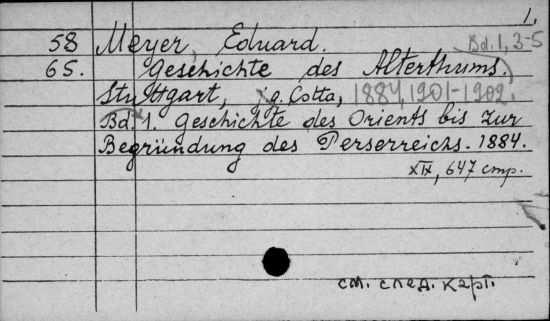 1.
58 Meyer, Eduard. Bd. 1, 3-5
65. Geschichte des Alterthums.
Stuttgart, J. G. Cotta, 1884, 1901-1902.
Bd. 1. Geschichte des Orients bis zur
Begründung des Perserreichs. 1884.
XIX, 647 стр.
см. след. карт.